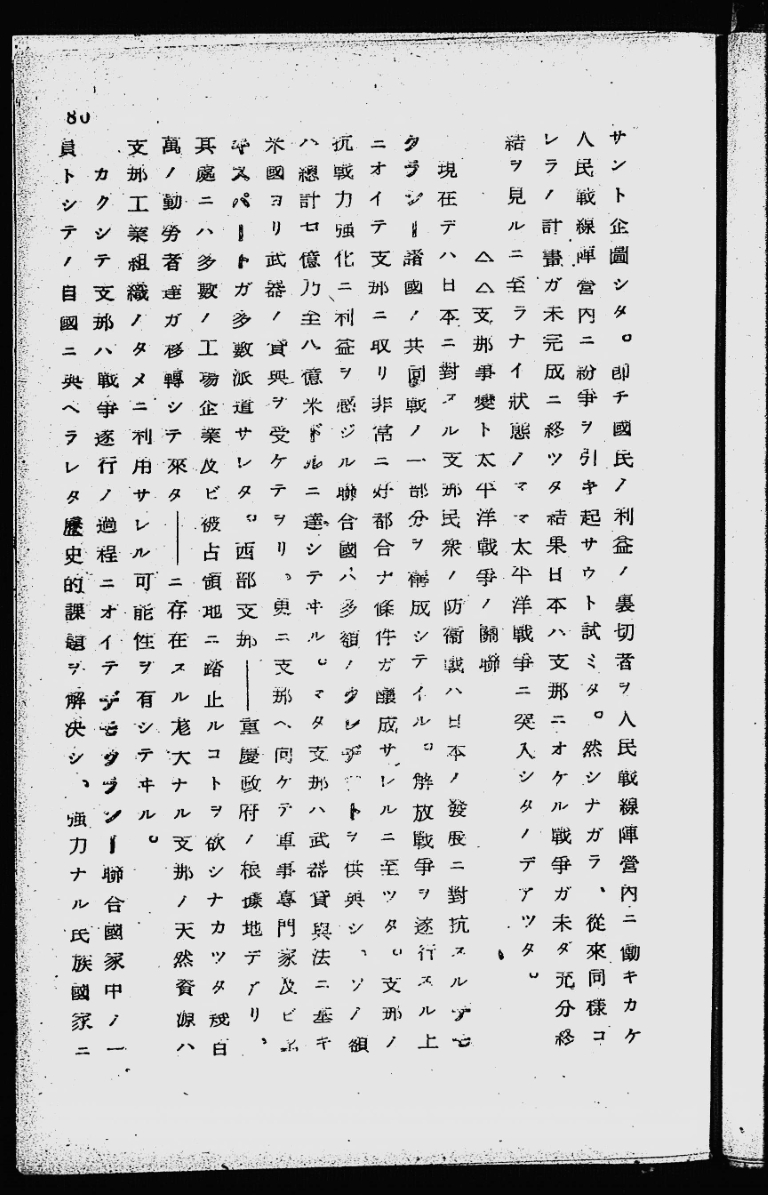 80
サント企圖シタ。卽チ國民ノ利益ノ裏切者ヲ人民戰線陣營内ニ働キカケ
人民戰線陣營内ニ紛爭ヲ引キ起サウト試ミタ。然シナガラ、從來同樣コ
レラノ計畫ガ未完成ニ終ツタ結果日本ハ支那ニオケル戰爭ガ未ダ充分終
結ヲ見ルニ至ラナイ狀態ノママ太平洋戰爭ニ突入シタノデアツタ。
△△支那事變ト太平洋戰爭ノ關聯
現在デハ日本ニ對スル支那民衆ノ防衞戰ハ日本ノ發展ニ對抗スルデモ
クラシー諸國ノ共同戰ノ一部分ヲ構成シテイル。解放戰爭ヲ遂行スル上
ニオイテ支那ニ取リ非常ニ好都合ナ條件ガ釀成サレルニ至ツタ。支那ノ
抗戰力強化ニ利益ヲ感ジル聯合國ハ多額ノクレヂットヲ供與シ、ソノ額
ハ總計七億乃至八億米ドルニ達シテヰル。マタ支那ハ武器貸與法ニ基キ
米國ヨリ武器ノ貸與ヲ受ケテヲリ、更ニ支那ヘ向ケテ軍事專門家及ビ
キスパートガ多數派遣サレタ。西部支那――重慶政府ノ根據地デアリ、
其處ニハ多數ノ工場企業及ビ被占領地ニ踏止ルコトヲ欲シナカツタ幾百
萬ノ勤勞者達ガ移轉シテ來タ――ニ存在スル尨大ナル支那ノ天然資源ハ
支那工業組織ノタメニ利用サレル可能性ヲ有シテヰル。
カクシテ支那ハ戰爭遂行ノ過程ニオイテデモクラシー聯合國家中ノ一
員トシテノ自國ニ與ヘラレタ歷史的課題ヲ解決シ、強力ナル民族國家ニ